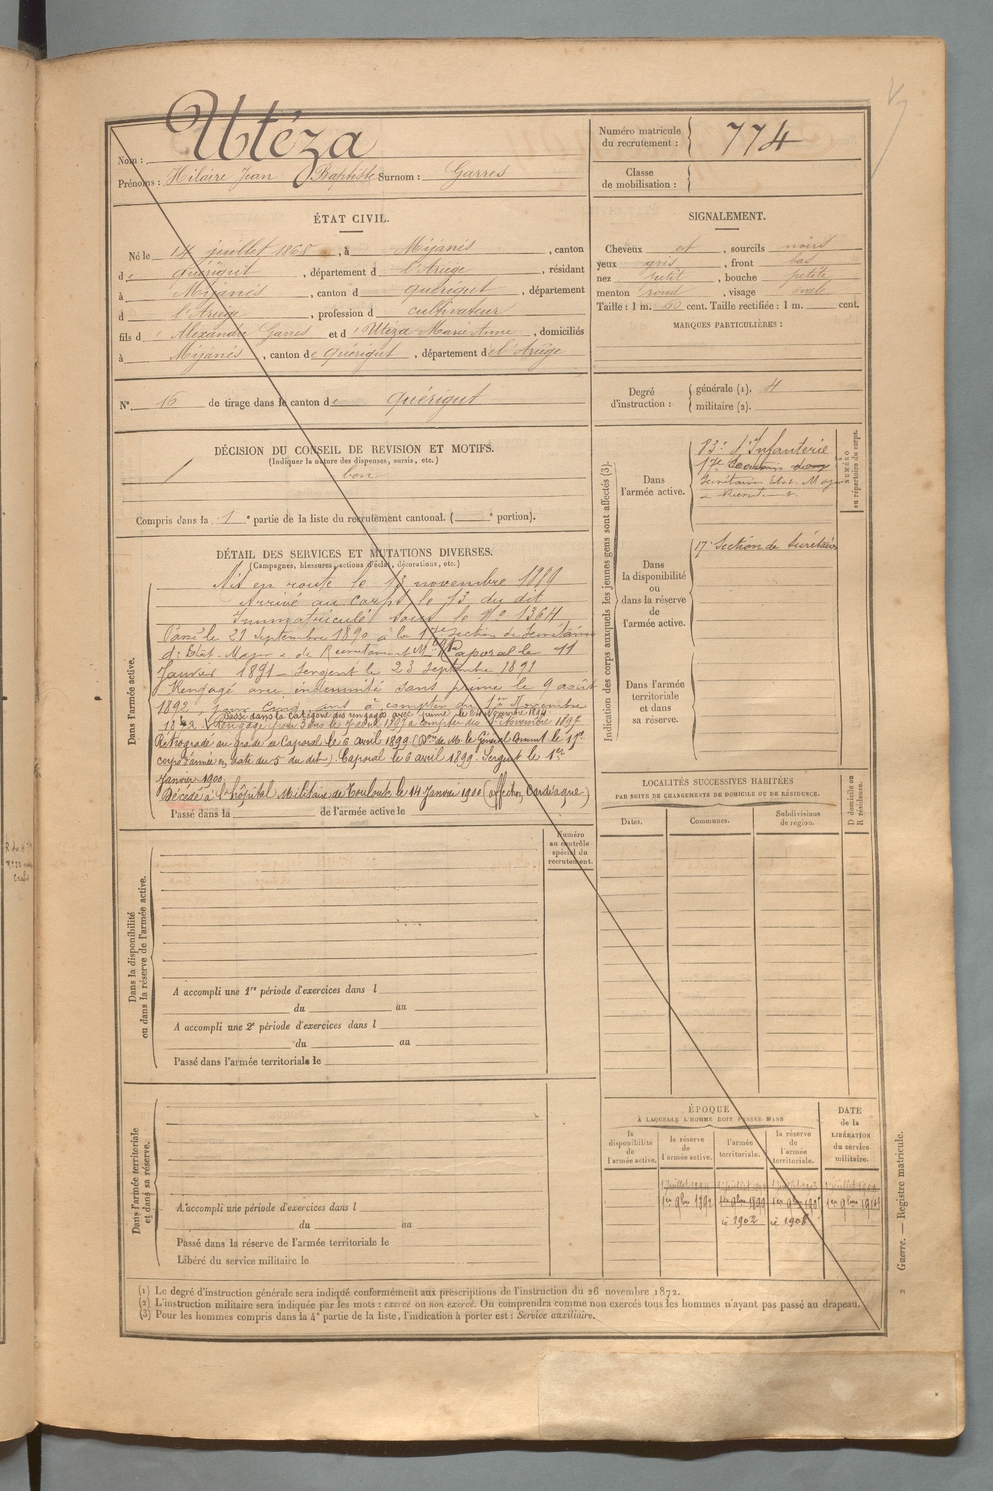 Nom : Utéza
Prénoms : Hilaire Jean Baptiste Surnom : Garres
Numéro matricule du recrutement : 774
Classe de mobilisation :
ÉTAT CIVIL.
Né le 14 juillet 1868, à Mijanès, canton
de Quérigut, département d l'Ariège, résidant
à Mijanès, canton d Quérigut, département
d l'Ariège, profession d cultivateur
fils d' Alexandre et d' Utéza Marie Anne, domiciliés
à Mijanès, canton de Quérigut, département de l'Ariège
N° 16 de tirage dans le canton de Quérigut
SIGNALEMENT.
Cheveux et, sourcils noirs
yeux gris, front bas
nez petit, bouche petite
menton rond, visage ovale
Taille : 1 m. 60 cent. Taille rectifiée : 1 m. cent.
MARQUES PARTICULIÈRES :
Degré d'instruction :
générale (1).
militaire (2).
DÉCISION DU CONSEIL DE REVISION ET MOTIFS.
(Indiquer la nature des dispenses, sursis, etc.)
bon
Compris dans la 1e partie de la liste du recrutement cantonal. ( e portion).
DÉTAIL DES SERVICES ET MUTATIONS DIVERSES.
(Campagnes, blessures, actions d'éclat, décorations, etc.)
Dans l'armée active.
Mis en route le 13 novembre 1889
Arrivé au corps le 13 du dit
Immatriculé sous le N° 1364
Passé le 21 Septembre 1890 à la 17e Section de Secrétaires
d'Etat Major & de Recrutement Caporal le 11
Janvier 1891 – Sergent le 23 Septembre 1891
Rengagé avec indemnité sans prime le 9 août
1892 pour cinq ans à compter du 1er Novembre
Passé dans la catégorie des rengagés avec prime le 24 Novembre 1894
1892 Rengagé pour 5 ans le 7 août 1897 à compter du 1er Novembre 1897
Rétrogradé au grade de Caporal le 6 avril 1899 (Don de Mr le Général Commt le 17e
corps d'armée en date du 5 du dit). Caporal le 6 avril 1899. Sergent le 1er
Janvier 1900
Décédé à l'hôpital Militaire de Toulouse le 14 Janvier 1900 (affection Cardiaque)
Passé dans la de l'armée active le
Indication des corps auxquels les jeunes gens sont affectés (3).
NUMÉRO au répertoire du corps.
Dans l'armée active.
83e d'Infanterie
17e
Secrétaires Etat Major
& Recrutement
Dans la disponibilité ou dans la réserve de l'armée active.
17e Section de Secrétaires
Dans l'armée territoriale et dans sa réserve.
LOCALITÉS SUCCESSIVES HABITÉES
PAR SUITE DE CHANGEMENTS DE DOMICILE OU DE RÉSIDENCE.
Dates.
Communes.
Subdivisions de région.
D domicile ou R résidence.
Dans la disponibilité ou dans la réserve de l'armée active.
Numéro au contrôle spécial du recrutement.
A accompli une 1re période d'exercices dans l
du au
A accompli une 2e période d'exercices dans l
du au
Passé dans l'armée territoriale le
Dans l'armée territoriale et dans sa réserve.
A accompli une période d'exercices dans l
du au
Passé dans la réserve de l'armée territoriale le
Libéré du service militaire le
ÉPOQUE
À LAQUELLE L'HOMME DOIT PASSER DANS
la disponibilité de l'armée active.
la réserve de l'armée active.
l'armée territoriale.
la réserve de l'armée territoriale.
DATE de la LIBÉRATION du service militaire.
1er 9bre 1892 1er 9bre 1899 1er 9bre 1er 9bre
1902 1908
(1) Le degré d'instruction générale sera indiqué conformément aux prescriptions de l'instruction du 26 novembre 1872.
(2) L'instruction militaire sera indiquée par les mots : exercé ou non exercé. On comprendra comme non exercés tous les hommes n'ayant pas passé au drapeau.
(3) Pour les hommes compris dans la 4e partie de la liste, l'indication à porter est : Service auxiliaire.
Guerre. — Registre matricule.
2